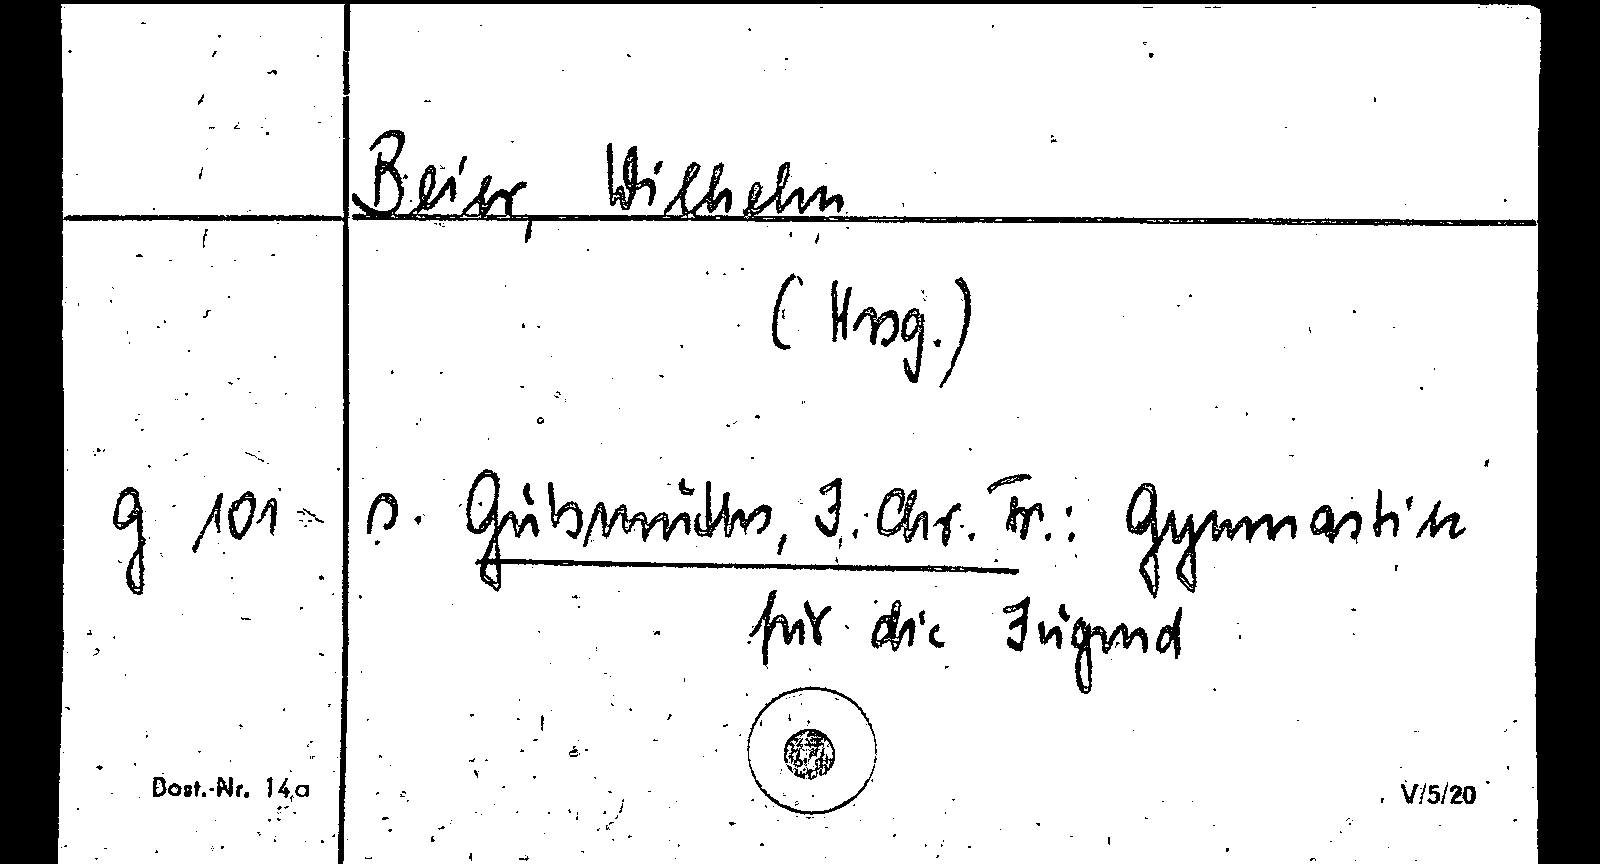 Beier, Wilhelm
(Hrsg.)
g 101 s. Gutsmuths, J. Chr. Fr.: Gymnastik
für die Jugend
Best.-Nr. 14a
V/5/20